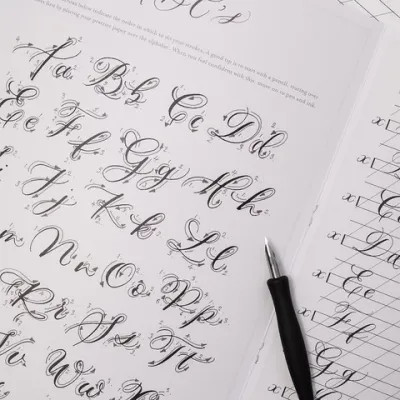 C's
below indicate the order in which to do your strokes. A good tip is to start with a pencil, tracing your
lines first by placing your practice paper over the alphabet. When you feel confident with this, move on to pen and ink.
Aa Bb Cc Dd
Ee Ff Gg Hh
Jj Kk Ll
Nn Oo Pp
Rr Ss Tt
Vv Ww
x
x
x Dd
x Ee
x Ff
Gg
x